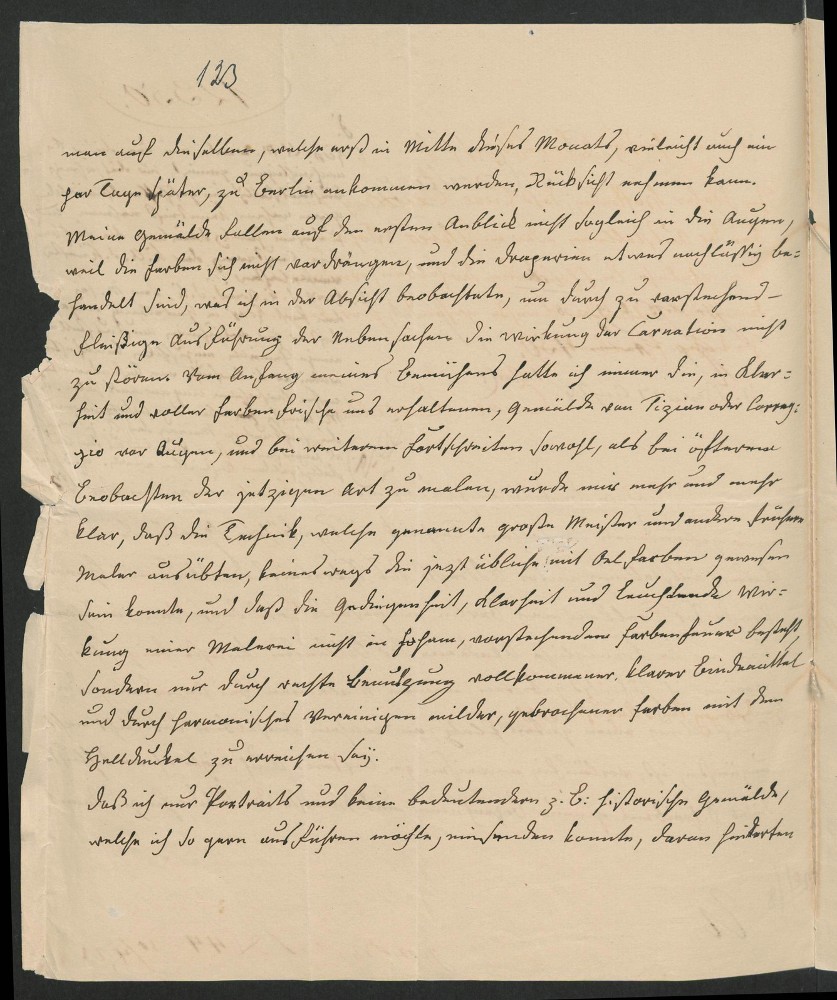 123
man auf dieselben, welche erst in Mitte dieses Monats, vieleicht auch ein
par Tage später, zu Berlin ankommen werden, Rücksicht nehmen kann.
Meine Gemälde fallen auf den ersten Anblick nicht sogleich in die Augen,
weil die Farben sich nicht vordrängen, und die Draperien etwas nachlässig be=
handelt sind, was ich in der Absicht beobachtete, um durch zu vorstechend-
fleißige Ausführung der Nebensachen die Wirkung der Carnation nicht
zu stören. Vom Anfang meines Bemühens hatte ich immer die, in Klar=
heit und voller Farbenfrische uns erhaltenen, Gemälde von Tizian oder Correg=
gio vor Augen, und bei weiterem Fortschreiten sowohl, als bei öfterem
Beobachten der jetzigen Art zu malen, wurde mir mehr und mehr
klar, daß die Technik, welche genannte große Meister und andere frühere
Maler ausübten, keineswegs die jezt übliche mit Oelfarben gewesen
sein konnte, und daß die Gediegenheit, Klarheit und leuchtende Wir=
kung einer Malerei nicht in hohem, vorstechendem Farbenfeuer besteht,
sondern nur durch rechte Benutzung vollkommener, klarer Bindemittel
und durch harmonisches Vereinigen milder, gebrochener Farben mit dem
Helldunkel zu erreichen sey.
Daß ich nur Portraits und keine bedeutendern z. B: historische Gemälde,
welche ich so gern ausführen möchte, einsenden konnte, daran hinderten